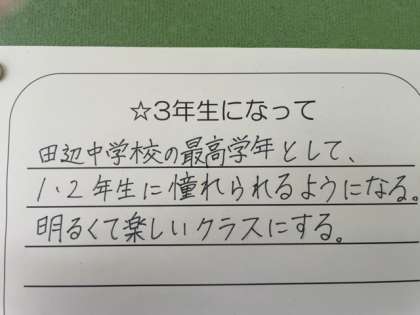 ☆3年生になって
田辺中学校の最高学年として、
1・2年生に憧れられるようになる。
明るくて楽しいクラスにする。